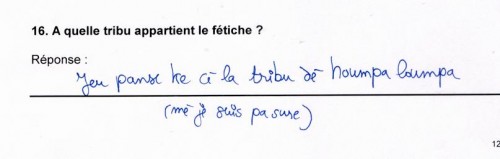 16. A quelle tribu appartient le fétiche ?
Réponse :
Jeu panse ke cé la tribu dé houmpa loumpa
(mé je suis pa sure)
12